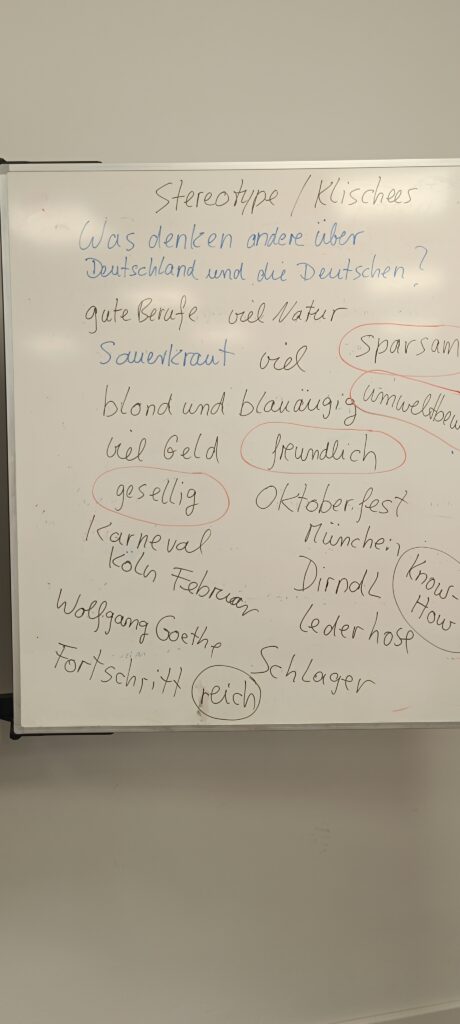 Stereotype / Klischees
Was denken andere über
Deutschland und die Deutschen?
gute Berufe viel Natur
Sauerkraut viel sparsam
blond und blauäugig umweltbew
viel Geld freundlich
gesellig Oktoberfest
Karneval München
Köln Februar Dirndl Know-
How
Wolfgang Goethe Lederhose
Fortschritt reich Schlager